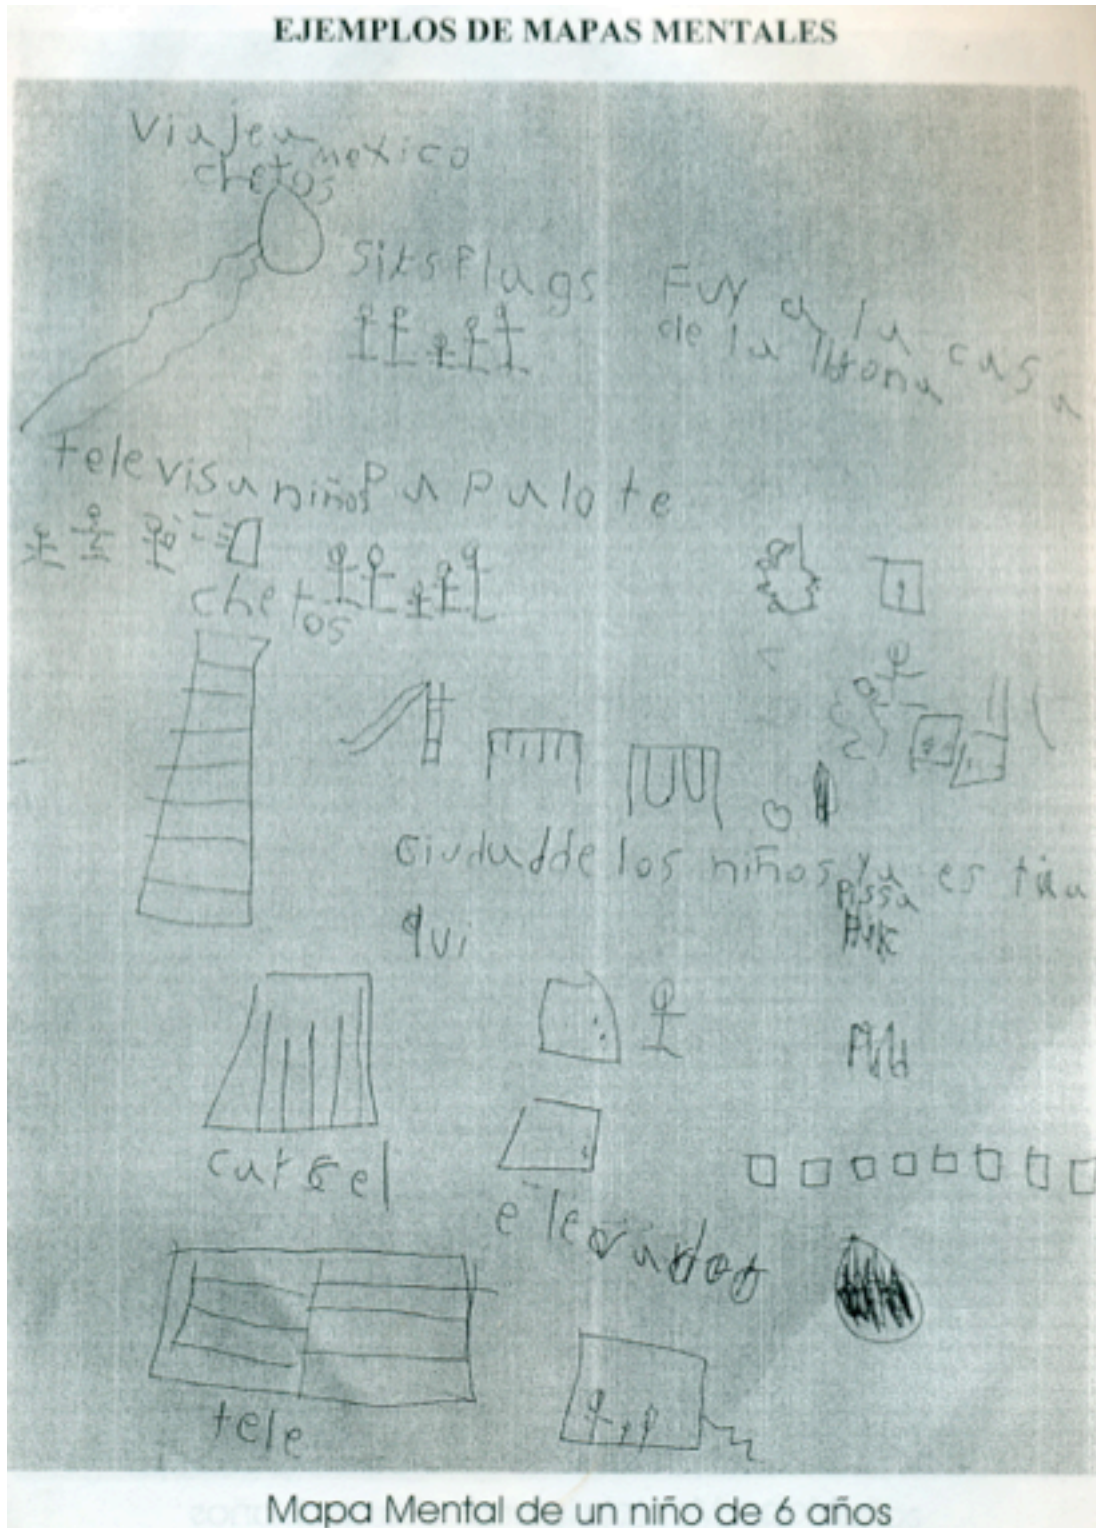 EJEMPLOS DE MAPAS MENTALES
Viajea mexico
chetos
Sitsflags
Fuy a la casa
de la
televisa niños Papalote
chetos
Ciudadde los niños ya es táa
qui
pissa
carcel
tele
Mapa Mental de un niño de 6 años